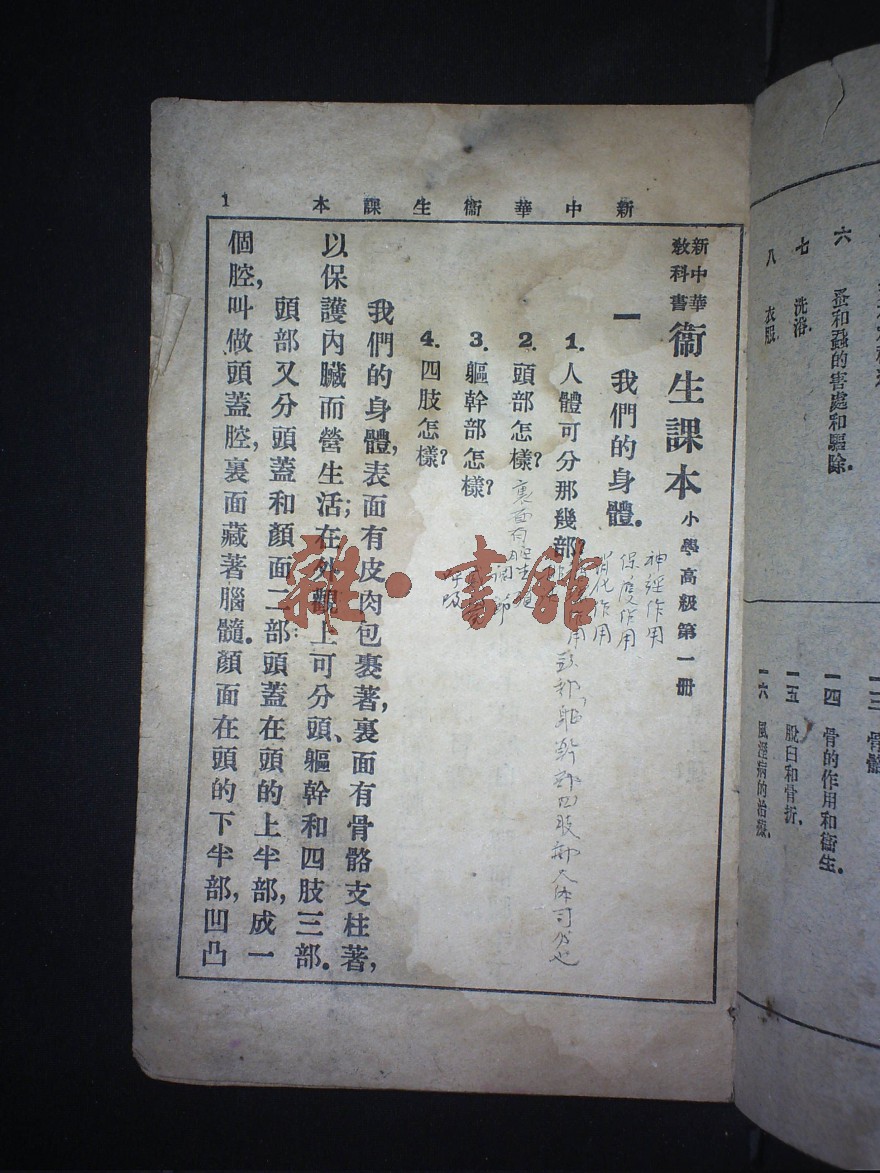 六
蚤和蝨的害處和驅除.
七
洗浴.
八
衣服.
一三
骨骼
一四
骨的作用和衞生.
一五
脫臼和骨折.
一六
風溼病的治療.
新中華衞生課本
1
新中華
敎科書
衞生課本
小學高級第一册
一 我們的身體.
1. 人體可分那幾部?
2. 頭部怎樣?
3. 軀幹部怎樣?
4. 四肢怎樣?
我們的身體,表面有皮肉包裹著,裏面有骨骼支柱著,
以保護內臟而營生活;在外觀上可分頭、軀幹和四肢三部.
頭部又分頭蓋和顏面二部:頭蓋在頭的上半部,成一
個腔,叫做頭蓋腔,裏面藏著腦髓.顏面在頭的下半部,凹凸
神經作用
保度作用
消化作用
裏面有腔
頭部,軀幹部四肢部
雜·書館